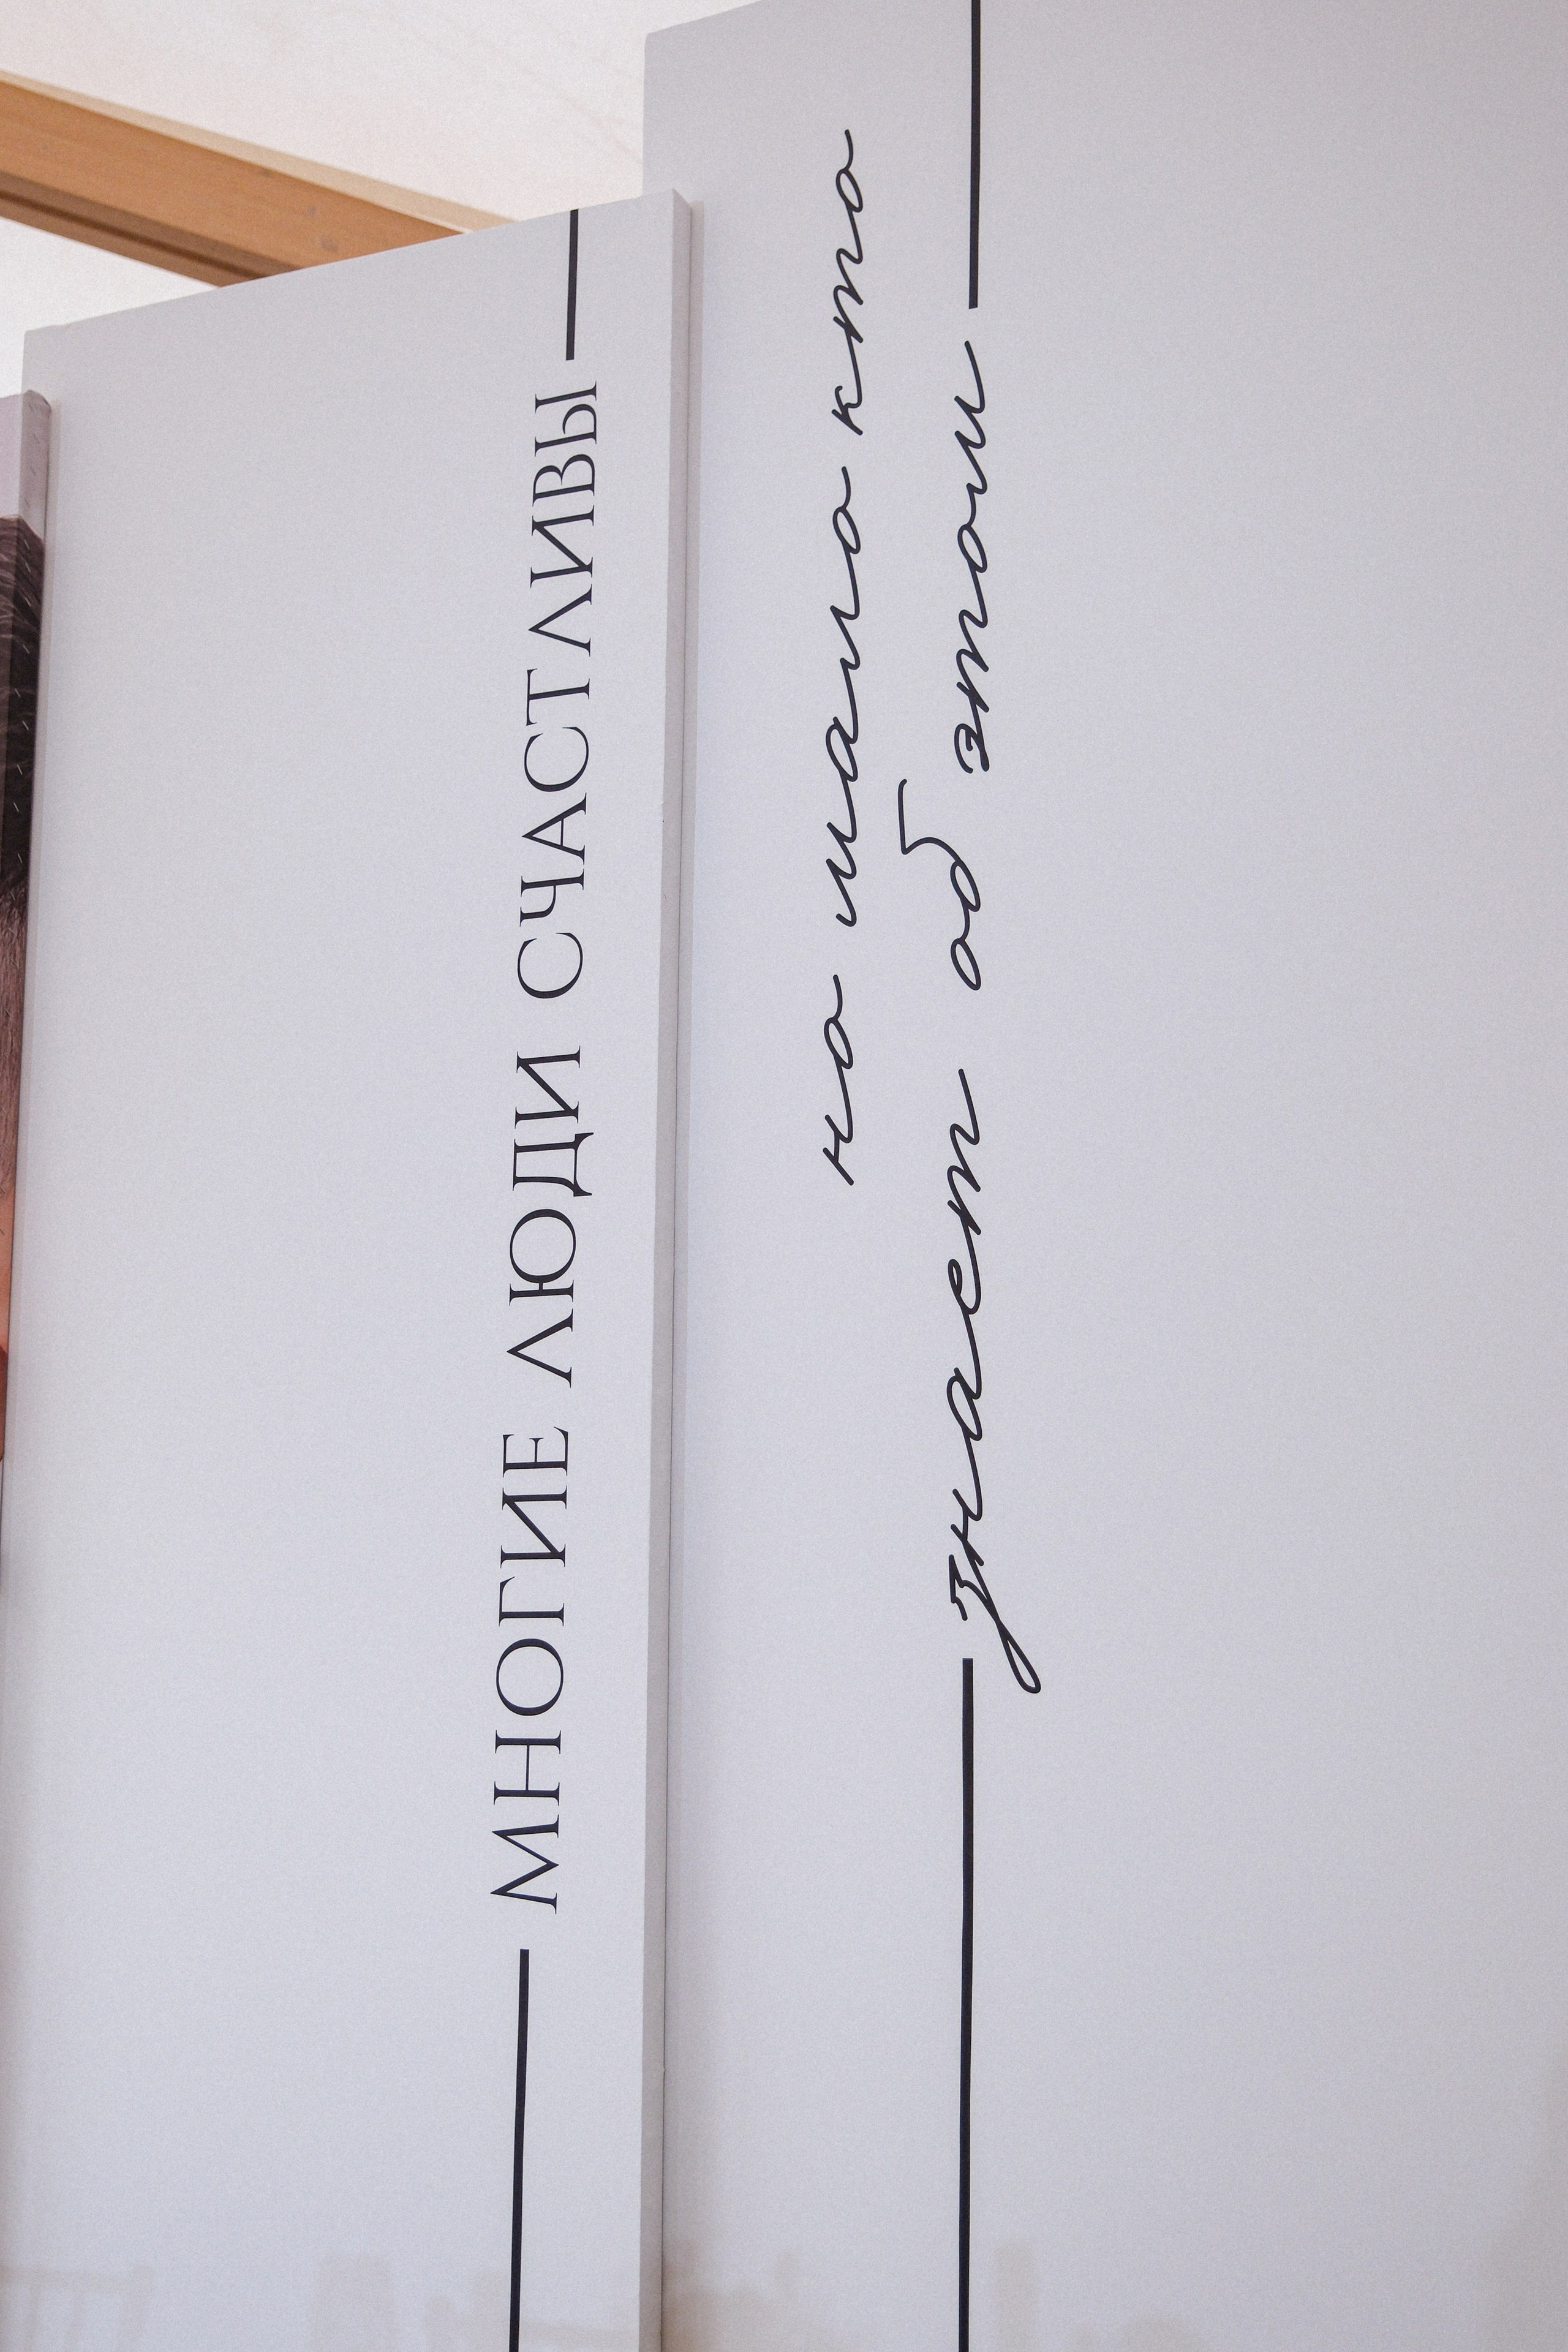 МНОГИЕ ЛЮДИ СЧАСТЛИВЫ
но мало кто
знает об этом